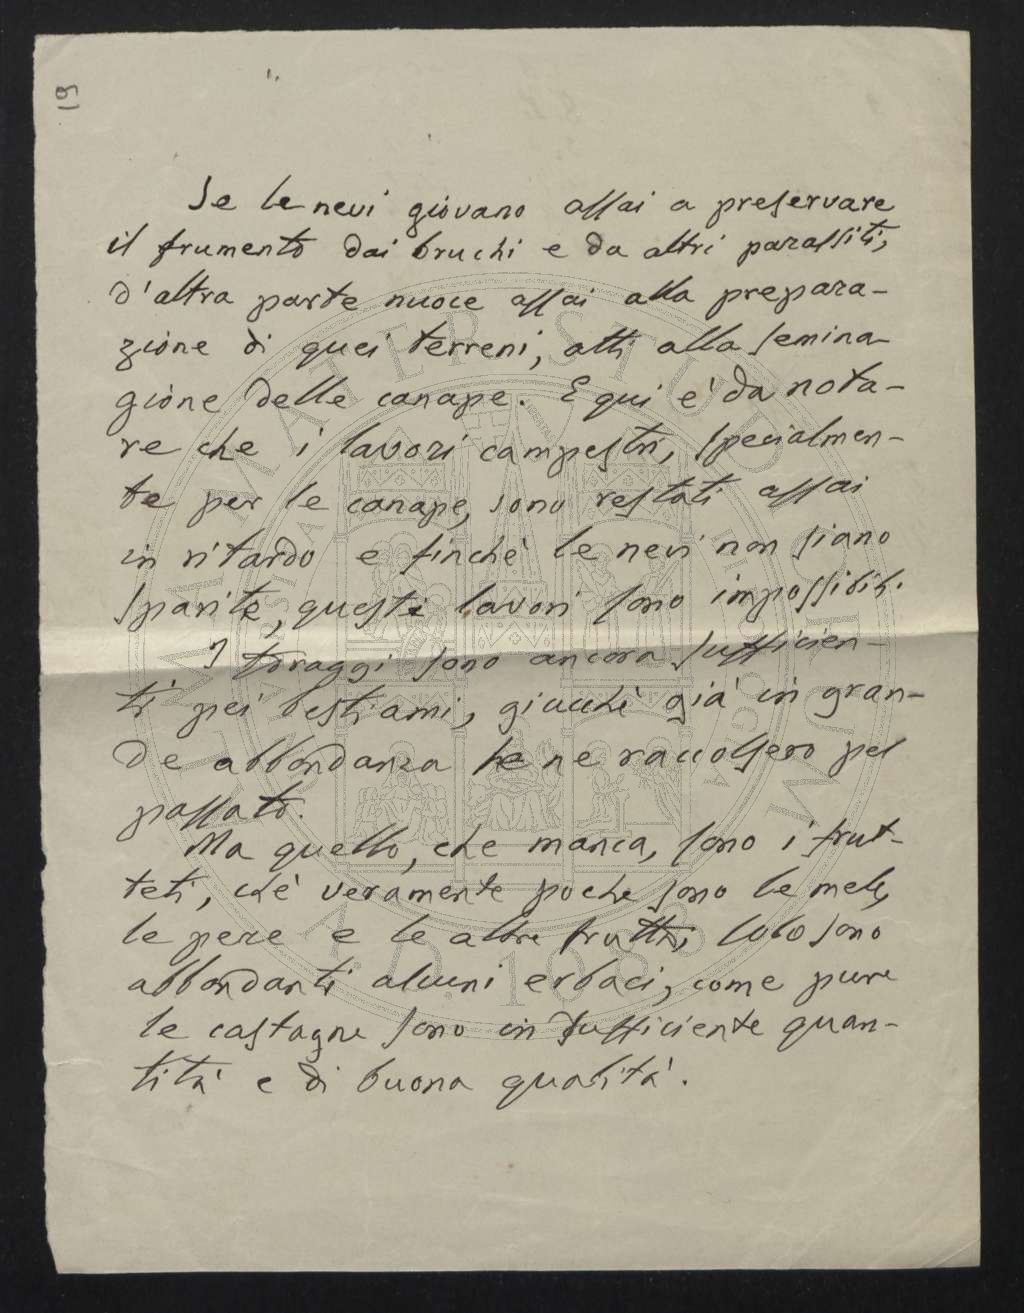 19
Se le nevi giovano assai a preservare
il frumento dai bruchi e da altri parassiti,
d'altra parte nuoce assai alla prepara-
zione di quei terreni, atti alla semina-
gione delle canape. E qui è da nota-
re che i lavori campestri, specialmen-
te per le canape, sono restati assai
in ritardo e finchè le nevi non siano
sparite, questi lavori sono impossibili.
I foraggi sono ancora sufficien-
ti pei bestiami, giacchè già in gran-
de abbondanza se ne raccolsero pel
passato.
Ma quello, che manca, sono i frut-
teti, chè veramente poche sono le mele,
le pere e le altre frutta; solo sono
abbondanti alcuni erbaci, come pure
le castagne sono in sufficiente quan-
tità e di buona qualità.
ALMA MATER STUDIORUM
A.D. 1088